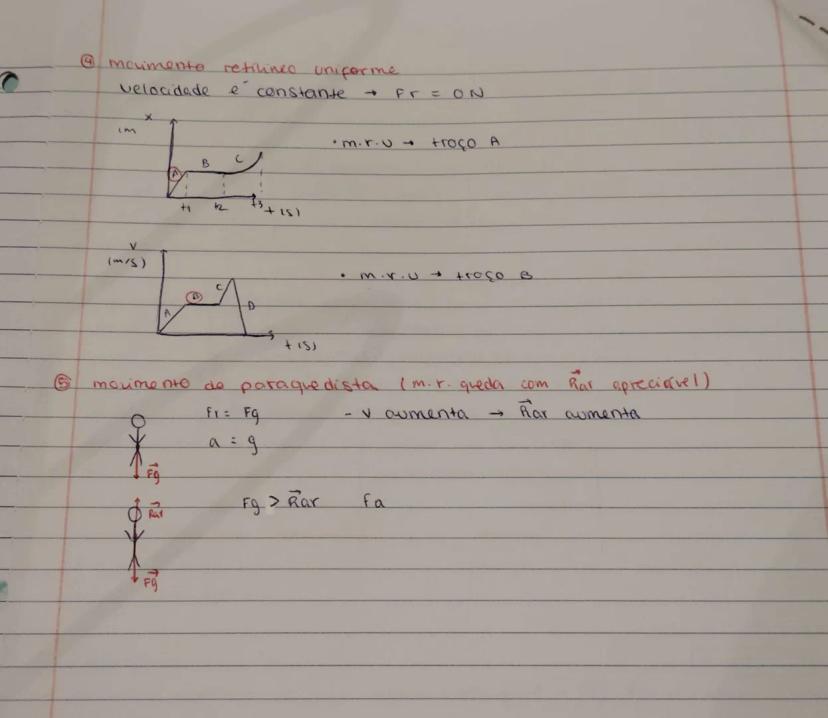 ④ movimento retilíneo uniforme
velocidade é constante → Fr = 0N
x
(m
• m.r.u → troço A
A B C
t1 t2 t3 t(s)
v
(m/s)
• m.r.u → troço B
A B C D
t(s)
⑤ movimento do paraquedista (m.r. queda com Rar apreciável)
Fr = Fg - v aumenta → Rar aumenta
a = g
Fg
Fg > Rar Fa
Rar
Fg